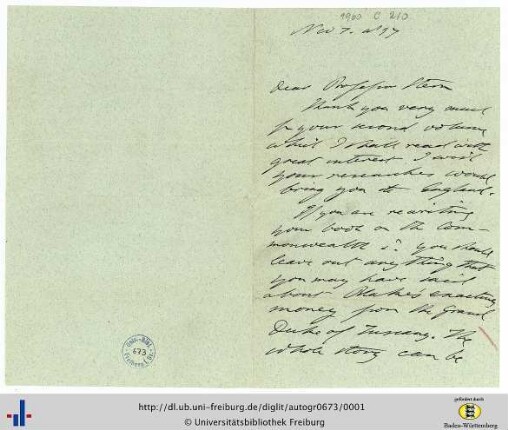 1900 C 210
Nov 7. 97
Dear Professor Stern
Thank you very much
for your second volume
which I shall read with
great interest. I wish
your researches would
bring you to England.
If you are rewriting
your book on the Com-
monwealth you should
leave out anything that
you may have said
about Blake's exacting
money from the Grand
Duke of Tuscany. The
whole story can be
673
http://dl.ub.uni-freiburg.de/diglit/autogr0673/0001
© Universitätsbibliothek Freiburg
gefördert durch
Baden-Württemberg